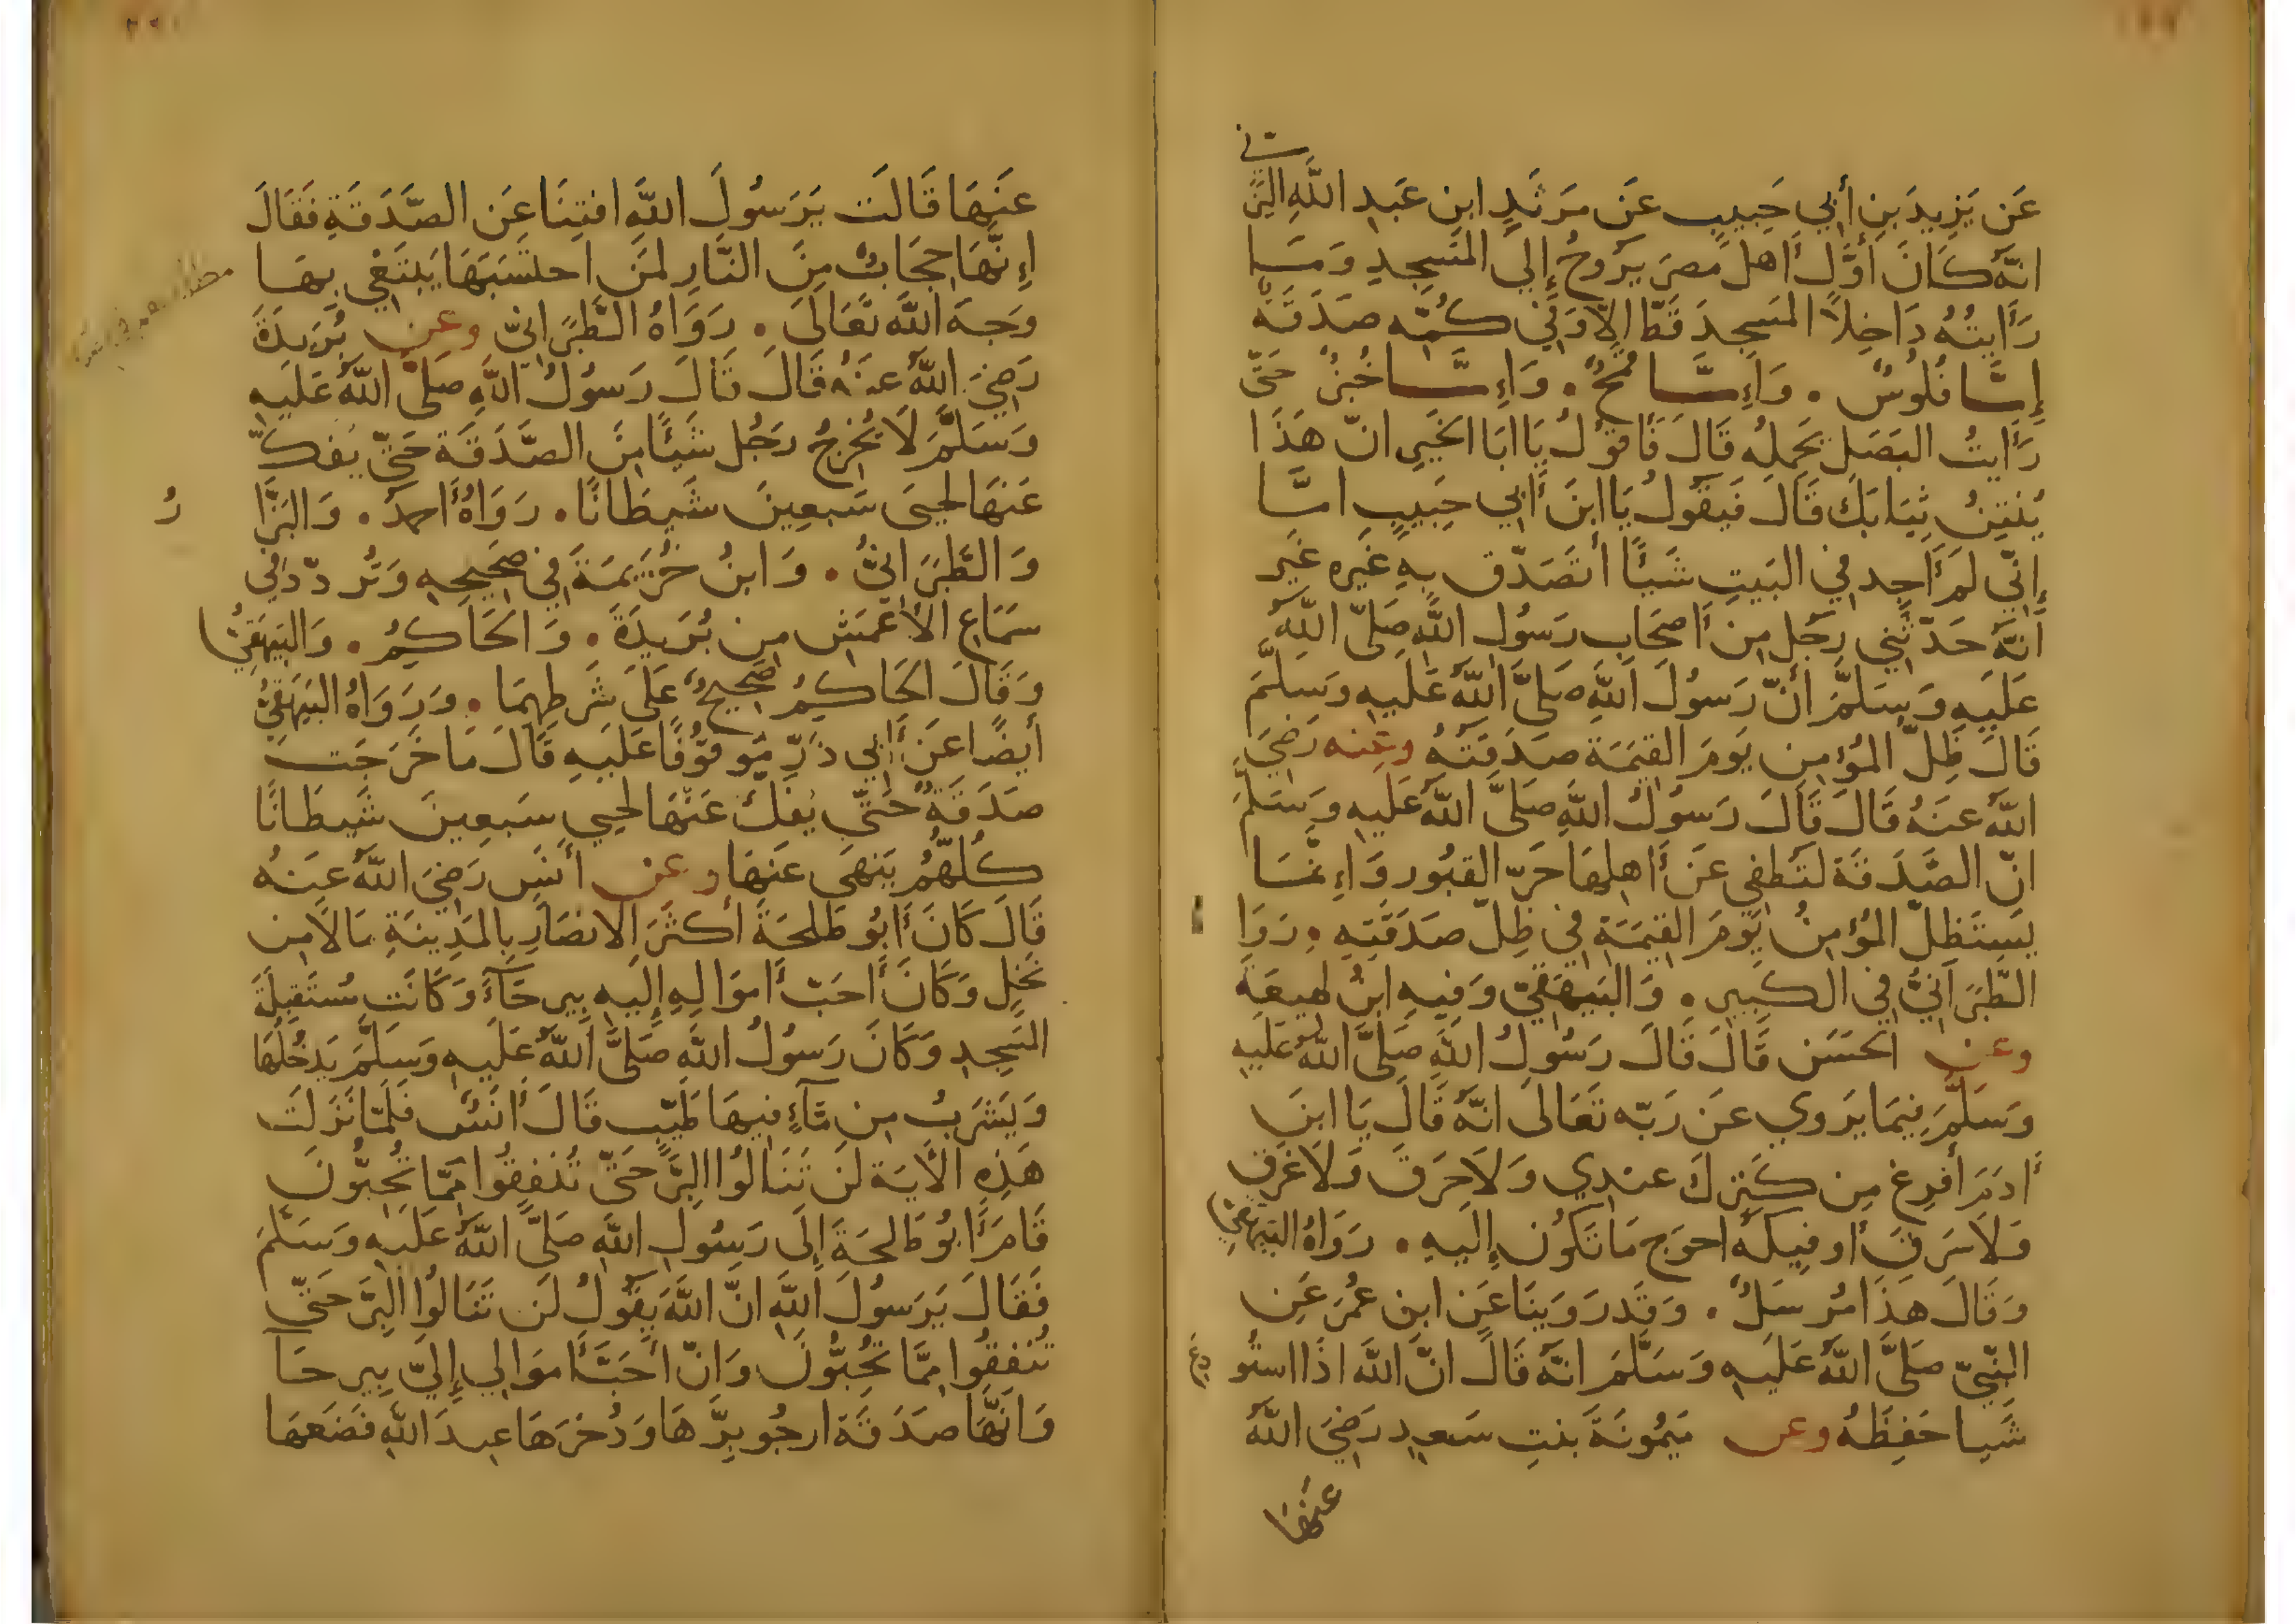 عَن يَزِيدَ بنِ أَبِي حَبِيبٍ عَن مَرثَدٍ ابنِ عَبدِ اللَّهِ اليَزَني
انَّهُ كَانَ أَوَّلَ أَهلِ مِصرَ يَرُوحُ إِلي المَسجِدِ وَمَا
رَأَيتُهُ دَاخِلاً المَسجِدَ قَطّ الاّ وَفي كُمّه صَدَقَة
إِمَّا فُلُوسٌ . وَإِمَّا قمحٌ . وَإِمَّا خُبزٌ حَتّى
رَأَيتُ البَصَلَ يَحمِلُه قَالَ فَأَقوُلُ يَا ابَا الخَيرِ انّ هَذَا
يُنتِنُ ثِيَابَكَ قَالَ فَيَقُولُ يَا ابنَ أَبِي حَبِيبٍ امَّا
إِنّي لَم أَجِد فِي البَيتِ شَيئًا أتَصَدّق بِهِ غَيرَه غَير
أَنّهُ حَدّثَنِي رَجُل مِن أَصحَابِ رَسُولِ اللَّهِ صَلَّى اللَّهُ
عَلَيهِ وَسَلَّمَ أنّ رَسُولَ اللَّهِ صَلَّى اللَّهُ عَلَيهِ وَسَلَّمَ
قَالَ ظِلّ المُؤمِنِ يَومَ القِيمَة صَدَقَتُهُ وعنه رَضِيَ
اللَّهُ عَنهُ قَالَ قَالَ رَسُولُ اللَّهِ صَلَّى اللَّهُ عَلَيهِ وَسَلَّمَ
انّ الصَّدَقَة لَتُطفِي عَن أَهلِهَا حَرّ القبُور وَإِنَّمَا
يَستَظلّ المُؤمِنُ يَومَ القِيمَةِ فِي ظِلّ صَدَقَتِهِ . رَوَا
الطّبَرَانيُّ فِي الكَبِيرِ . وَالبَيهَقيّ وَفِيهِ ابنُ لهِيعَة
وعن الحَسَن قَالَ قَالَ رَسُولُ اللَّهِ صَلَّى اللَّهُ عَلَيهِ
وَسَلَّمَ فِيمَا يَروِي عَن رَبّه تَعَالَى انَّهُ قَالَ يَا ابنَ
أدَمَ أَفرِغ مِن كَنزِكَ عِندِي وَلاَ حَرَقَ وَلاَ غَرَقَ
وَلاَ سَرَقَ أوفِيكَهُ احوَج مَا تَكُون إِلَيهِ . رَوَاهُ البَيهَقيّ
وَقَالَ هَذَا مُرسَلٌ . وَقَد رَوَينَا عَن ابنِ عُمَرَ عَن
النَّبِيّ صَلَّى اللَّهُ عَلَيهِ وَسَلَّمَ انَّهُ قَالَ انَّ اللَّهَ اذَا استُودِعَ
شَيا حَفِظَهُ وعن مَيمُونَةَ بنتِ سَعدٍ رَضِيَ اللَّهُ
عَنهَا
عَنهَا قَالَت يَرَسُولَ اللَّهِ افتِنَا عَنِ الصَّدَقَةِ فَقَالَ
إِنَّهَا حِجَابٌ مِنَ النَّارِ لمَنِ احتَسَبَهَا يَبتَغي بِهَا
وَجهَ اللَّهِ تَعَالَى . رَوَاهُ الطَّبَرَانيّ وعن بُرَيدَةَ
رَضِيَ اللَّهُ عَنهُ قَالَ قَالَ رَسُولُ اللَّهِ صَلَّى اللَّهُ عَلَيهِ
وَسَلَّمَ لَا يُخرِجُ رَجُل شَيئًا مِنَ الصَّدَقَة حَتّى يَفكّ
عَنهَا لحيَى سَبعِينَ شَيطَانًا . رَوَاهُ أَحمد . وَالبَزَّارُ
وَالطَّبَرَانيُّ . وَابنُ خُزَيمَةَ فِي صَحِيحِهِ وَتَردّد في
سَمَاعِ الأَعمَشِ مِن بُرَيدَةَ . وَالحَاكِمُ . وَالبَيهَقيّ
وَقَالَ الحَاكِمُ صَحِيحٌ عَلَى شَرطِهِمَا . وَرَوَاهُ البَيهَقيُّ
أيضًا عَن أَبِي ذَرّ مَوقوُفًا عَلَيهِ قَالَ مَا خَرَجَت
صَدَقَةٌ حَتّى يُفَكّ عَنهَا لحيي سَبعِينَ شَيطَانًا
كُلّهُم يَنهَى عَنهَا وعن أَنَسٍ رَضِيَ اللَّهُ عَنهُ
قَالَ كَانَ أَبُو طَلحَةَ أَكثَرَ الانصَارِ بِالمَدِينَةِ مَالاً مِن
نَخلٍ وَكَانَ أَحَبّ أَموَالِهِ إِلَيهِ بِيرحَآءَ وَكَانَت مُستَقبِلَةَ
المَسجِدِ وَكَانَ رَسُولُ اللَّه صَلَّى اللَّهُ عَلَيهِ وَسَلَّمَ يَدخُلُهَا
وَيَشرَبُ مِن مَآءٍ فِيهَا طَيّبٍ قَالَ أَنَسٌ فَلَمّا نَزَلَت
هَذِهِ الأيَة لَن تَنَالُوا البِرَّ حَتّى تُنفِقُوا مِمَّا تُحِبُّونَ
قَامَ أَبُو طَلحَةَ إِلَى رَسُولِ اللَّهِ صَلَّى اللَّهُ عَلَيهِ وَسَلَّمَ
فَقَالَ يَرَسُولَ اللَّهِ انّ اللَّهَ يَقُولُ لَن تَنَالُوا البِرَّ حَتّى
تُنفِقُوا مِمَّا تُحِبُّونَ وَانّ أَحَبَّ أَموَالِي إِلَيّ بِيرحَآ
وَانَّهَا صَدَقَة ارجُو بِرَّهَا وَدُخرَهَا عِندَ اللَّهِ فَضَعهَا